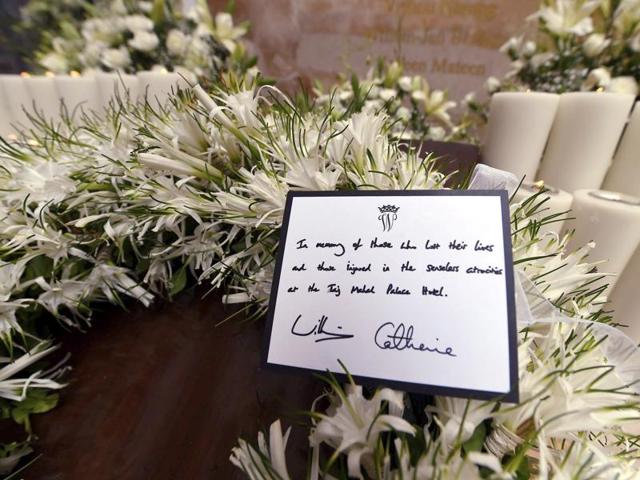 een Mateen
W
In memory of those who lost their lives
and those injured in the senseless atrocities
at the Taj Mahal Palace Hotel.
William Catherine